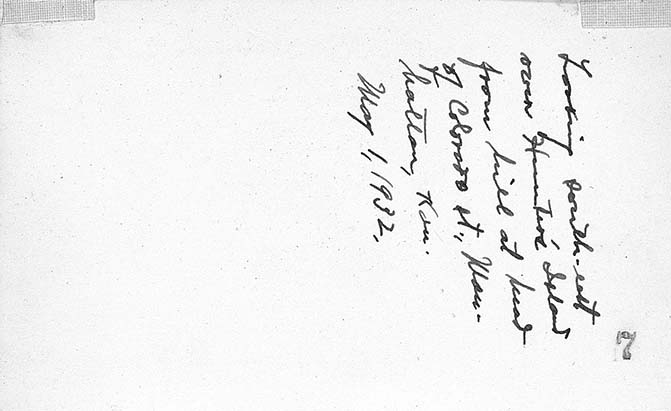 Looking south-east
over Hunter's Island
from hill at head
of Colorado St., Man-
hattan, Kan.
May 1, 1932.
7